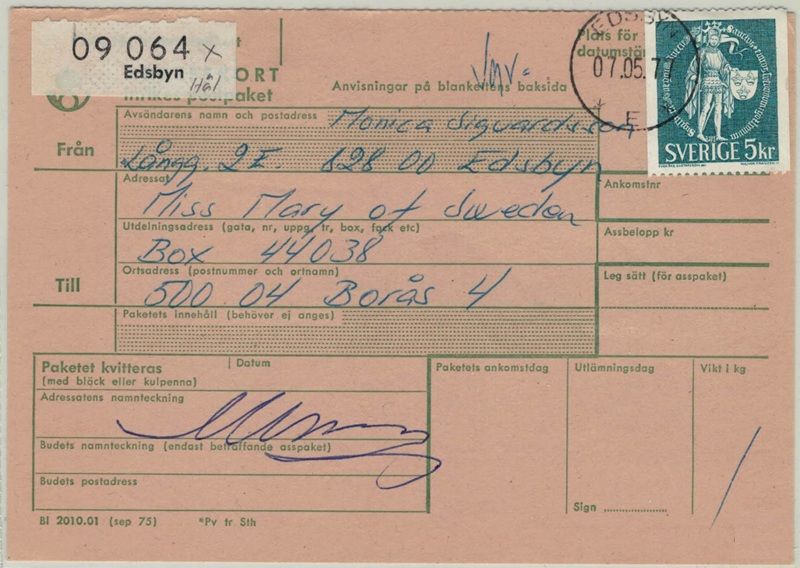 09 064 x
Edsbyn
Hål
ORT
Inrikes postpaket
Anvisningar på blankettens baksida
Plats för
datumstä
EDSBYN
07.05.7
* E
SVERIGE 5kr
Från
Avsändarens namn och postadress
Monica Sigvardsson
Långg. 2E. 828 00 Edsbyn
Till
Adressat
Miss Mary of Sweden
Utdelningsadress (gata, nr, uppg, tr, box, fack etc)
Box 44038
Ortsadress (postnummer och ortnamn)
500 04 Borås 4
Paketets innehåll (behöver ej anges)
Ankomstnr
Assbelopp kr
Leg sätt (för asspaket)
Paketet kvitteras
(med bläck eller kulpenna)
Datum
Adressatens namnteckning
Budets namnteckning (endast beträffande asspaket)
Budets postadress
Paketets ankomstdag
Utlämningsdag
Vikt i kg
/
Sign ....................
Bl 2010.01 (sep 75) *Pv tr Sth